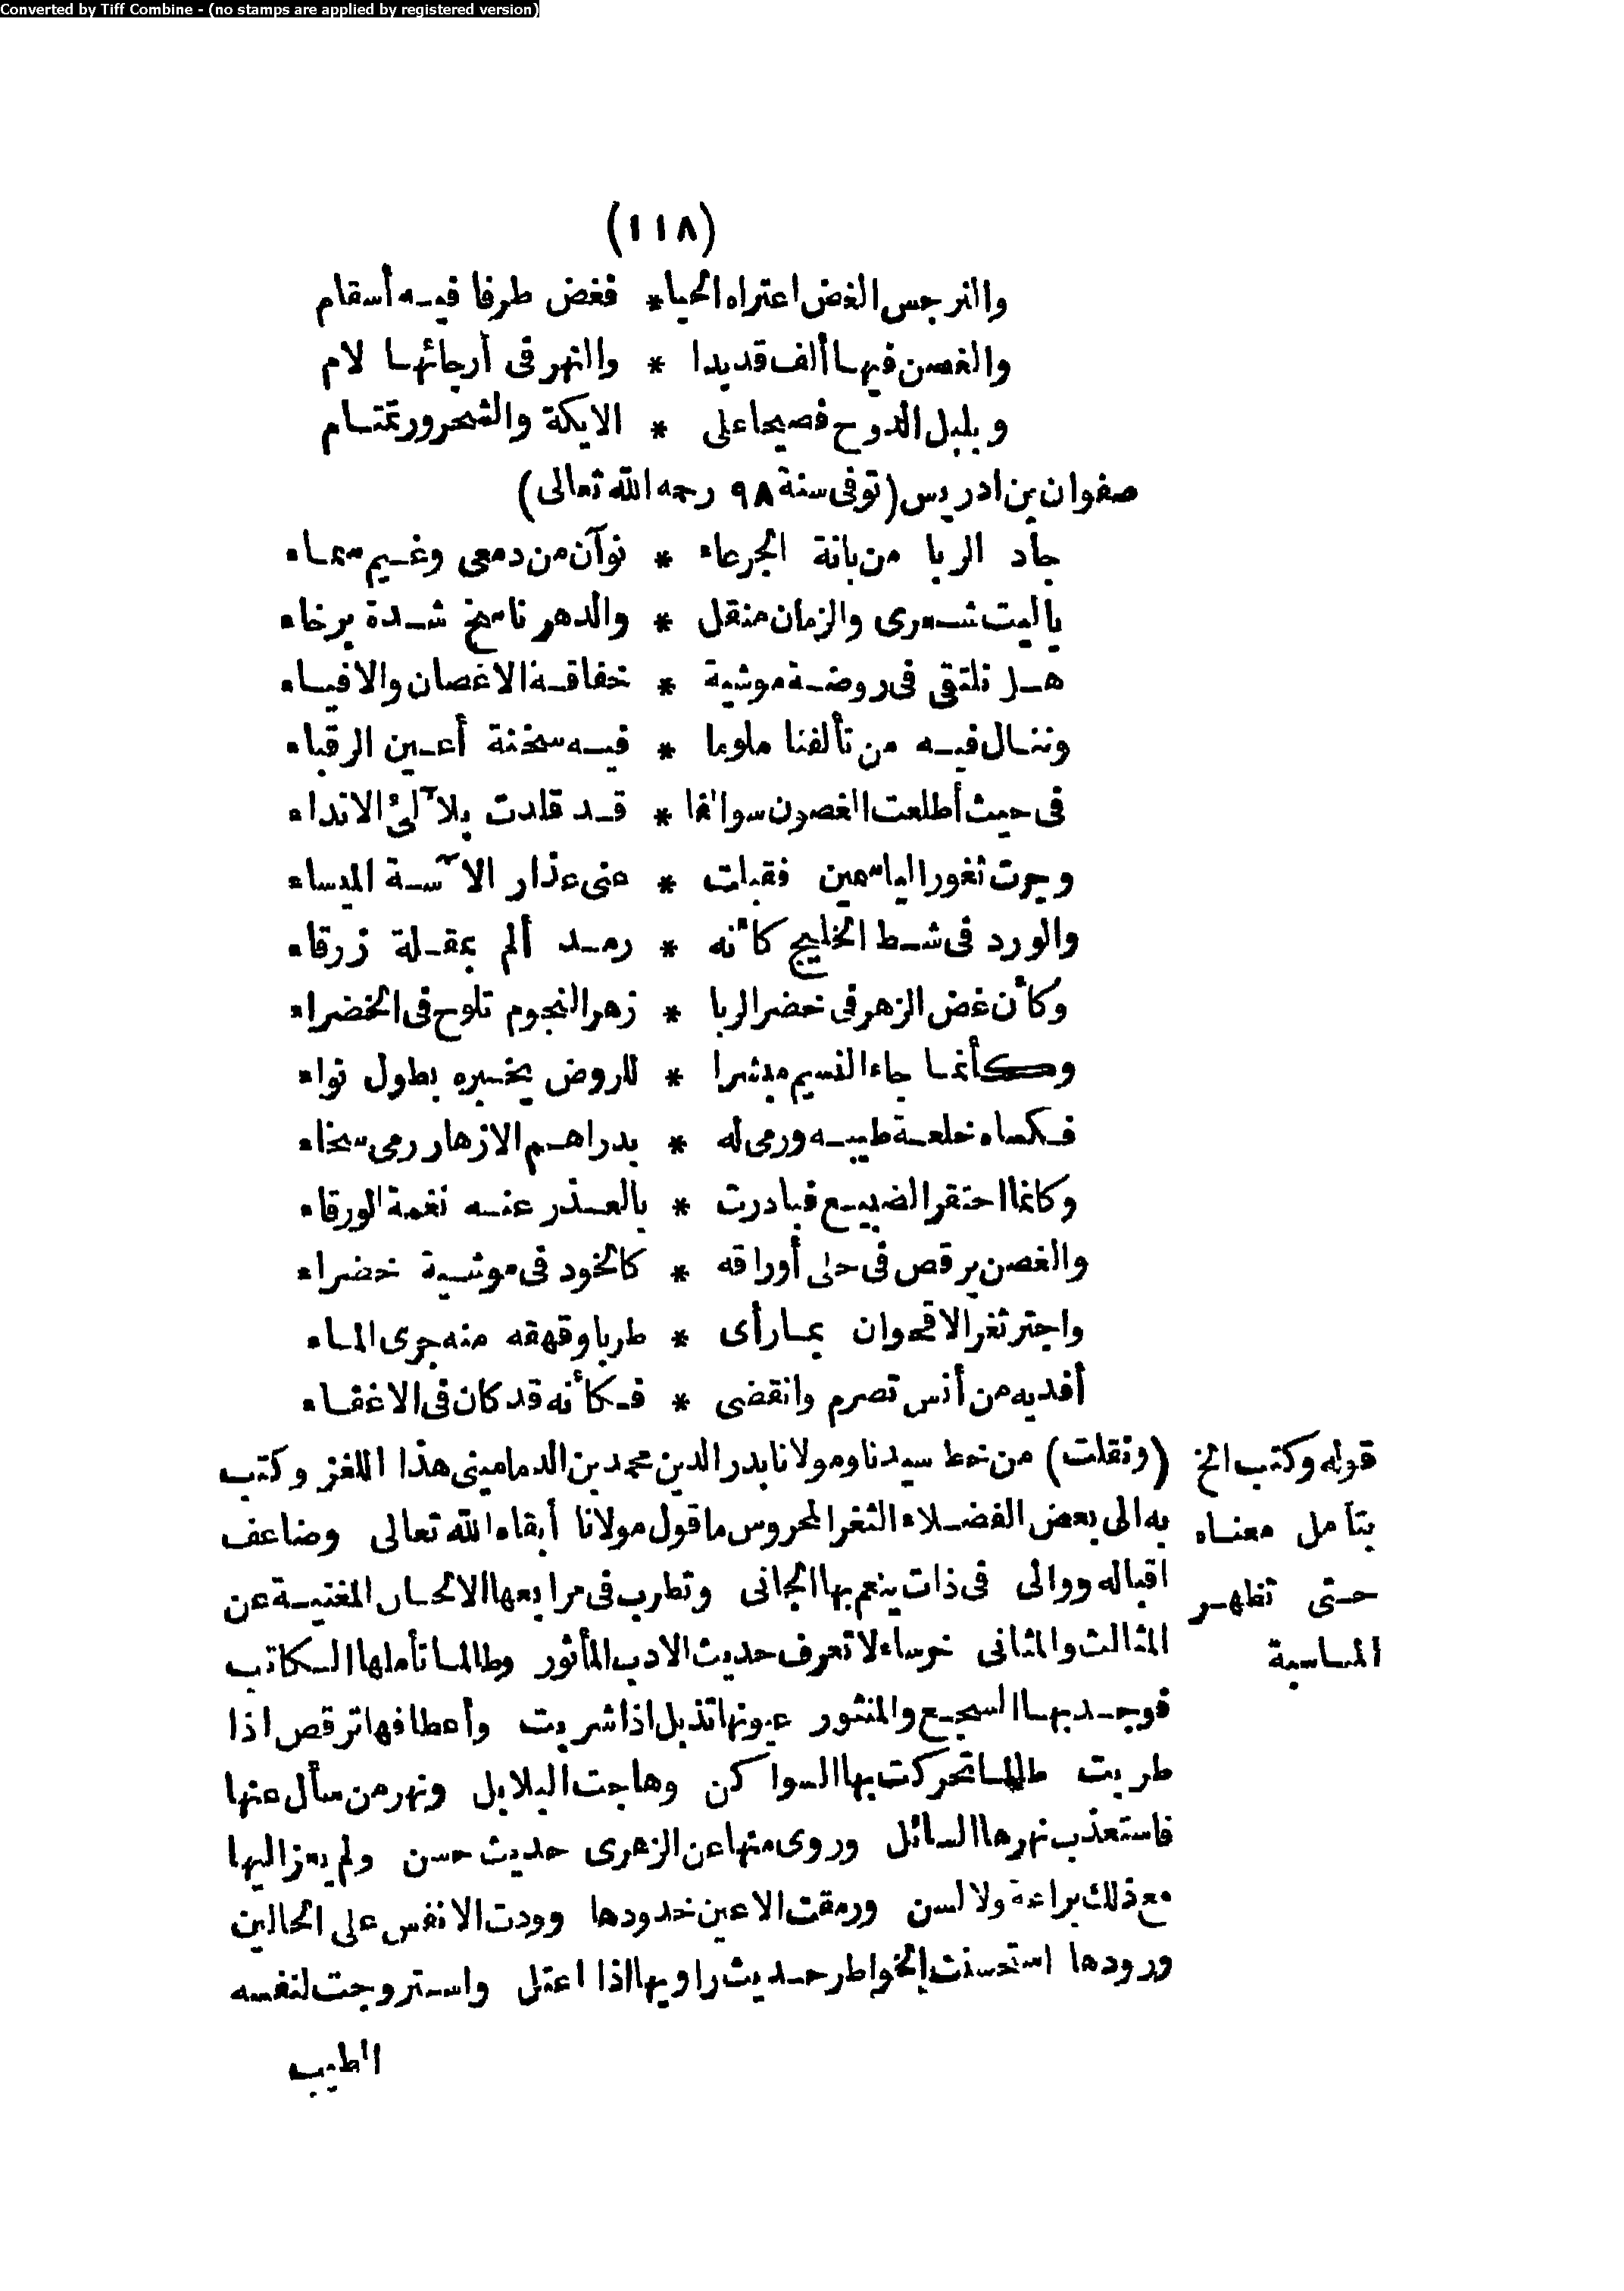 Converted by Tiff Combine - (no stamps are applied by registered version)
(١١٨)
والنرجس الغض اعتراه الحياء * فغض طرفا فيه أسقام
والغصن فيها ألف قد بدا * والنهر فى أرجائها لام
وبلبل الدوح فصيحا على * الايكة والشحرور تمتام
صفوان بن ادريس (توفى سنة ٩٨ رحمه الله تعالى)
جاد الربا من بانة الجرعاء * نوآن من دمعى وغيم سماء
ياليت شعرى والزمان منقل * والدهر ناسخ شدة برخاء
هل نلتقى فى روضة موشية * خفاقة الاغصان والافياء
وننال فيه من تألفنا ملوما * فيه سخنة أعين الرقباء
فى حيث أطلعت الغصون سوالفا * قد قلدت بلآلئ الانداء
وجرت ثغور الياسمين فقبلت * عنى عذار الآسة الميساء
والورد فى شط الخليج كأنه * رمد ألم بمقلة زرقاء
وكأن غض الزهر فى خضر الربا * زهر النجوم تلوح فى الخضراء
وكأنما جاء النسيم مبشرا * للروض يخبره بطول نواء
فكساه خلعة طيبه ورمى له * بدراهم الازهار رمى سخاء
وكانما احتقر الضييع فبادرت * بالعذر عنه نغمة الورقاء
والغصن يرقص فى حلى أوراقه * كالخود فى موشية خضراء
واجتر ثغر الاقحوان بما رأى * طربا وقهقه منه جرى الماء
أفديه من أنس تصرم وانقضى * فكأنه قد كان فى الاغفاء
(ونقلت) من خط سيدنا ومولانا بدر الدين محمد بن الدمامينى هذا اللغز وكتب
به الى بعض الفضلاء الثغر المحروس ما قول مولانا أبقاه الله تعالى وضاعف
اقباله ووالى فى ذات ينعم بها الجانى وتطرب فى مرابعها الالحان المغنية عن
المثالث والمثانى خرساء لا تعرف حديث الادب المأثور وطالما تأملها الكاتب
فوجد بها السجع والمنثور عيونها تذبل اذا شربت وأعطافها ترقص اذا
طربت طالما تحركت بها السواكن وهاجت البلابل ونهر من سأل عنها
فاستعذب نهرها السائل وروى منها عن الزهرى حديث حسن ولم يعز اليها
مع ذلك براعة ولا لسن ورمقت الاعين خدودها وودت الانفس على الحالين
ورودها استحسنت الخواطر حديث راويها اذا اعتل واستروجت لنفسه
الطيب
قوله وكتب الخ
بتأمل معناه
حتى تظهر
المناسبة